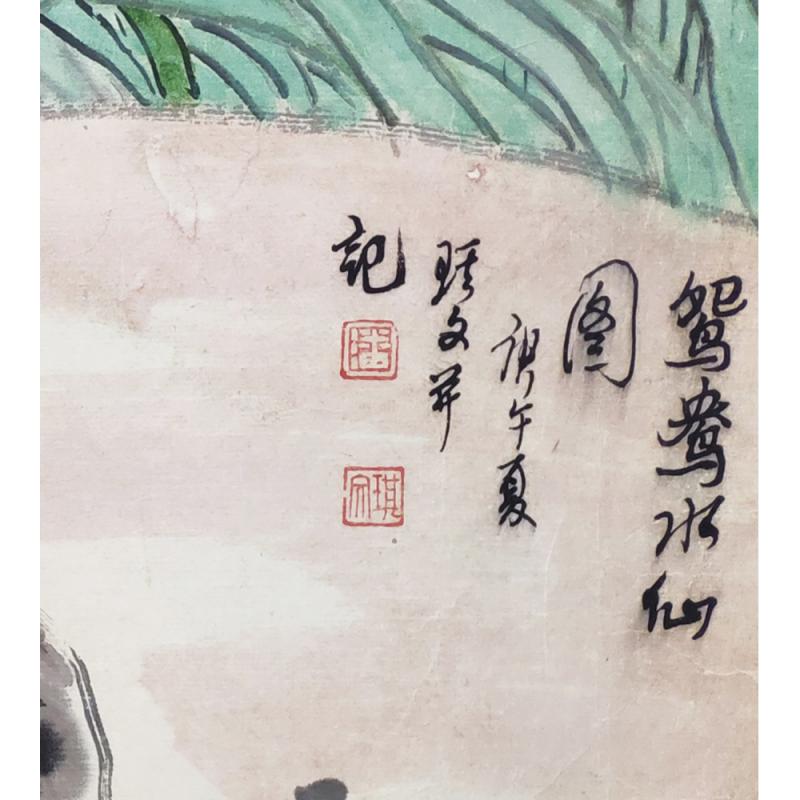 鴛鴦水仙
图
庚午夏
琪文并
記